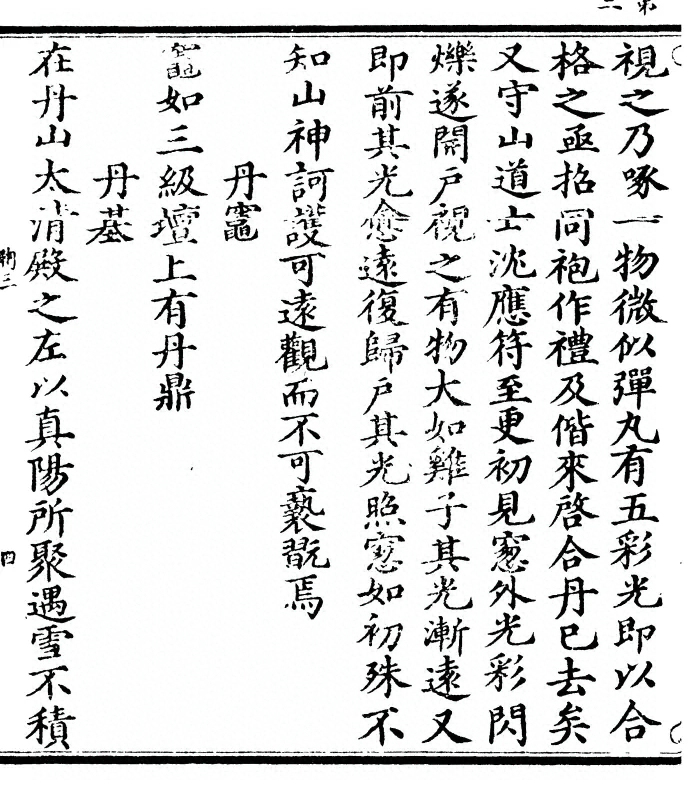 視之乃啄一物微似彈丸有五彩光即以合
格之亟招同袍作禮及偕來啓合丹已去矣
又守山道士沈應符至更初見窻外光彩閃
爍遂開户視之有物大如雞子其光漸遠又
即前其光愈遠復歸户其光照窻如初殊不
知山神訶護可遠觀而不可褻翫焉
丹竈
竈如三級壇上有丹鼎
丹基
在丹山太清殿之左以真陽所聚遇雪不積
四